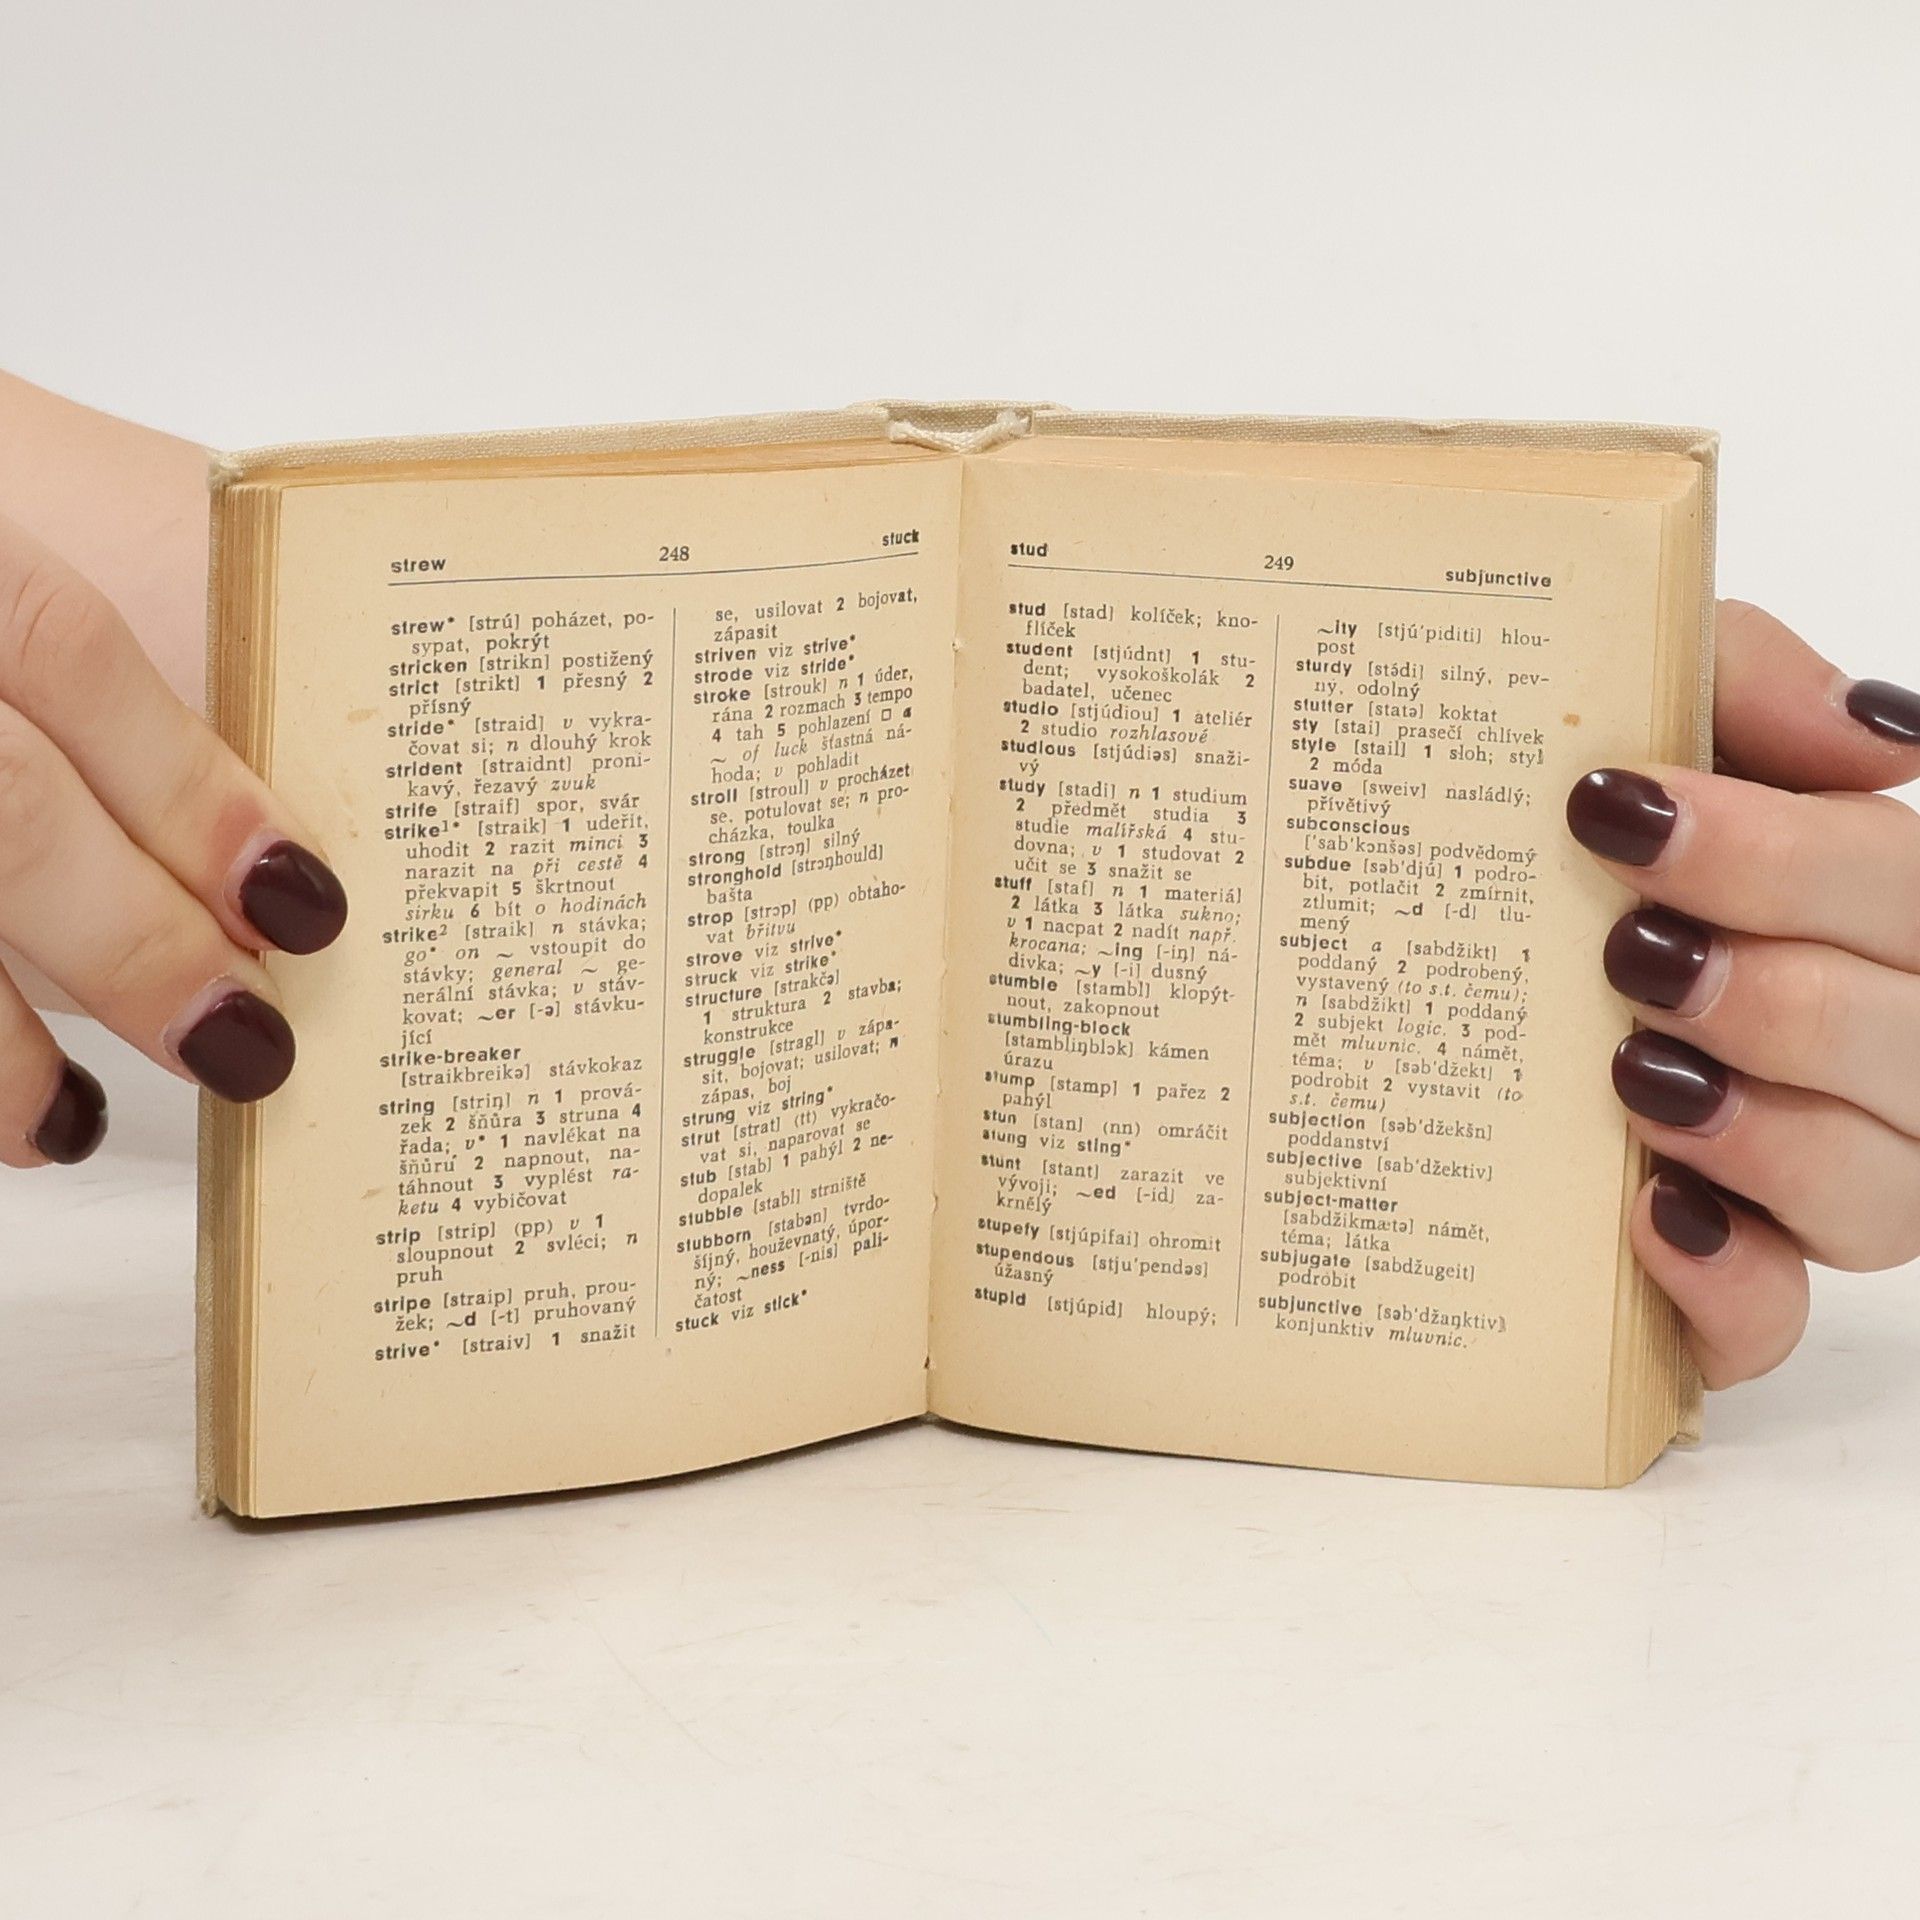 strew 248 stuck
strew* [strú] poházet, po-
sypat, pokrýt
stricken [strikn] postižený
strict [strikt] 1 přesný 2
přísný
stride* [straid] v vykra-
čovat si; n dlouhý krok
strident [straidnt] proni-
kavý, řezavý zvuk
strife [straif] spor, svár
strike¹* [straik] 1 udeřit,
uhodit 2 razit minci 3
narazit na při cestě 4
překvapit 5 škrtnout
sirku 6 bít o hodinách
strike² [straik] n stávka;
go* on ~ vstoupit do
stávky; general ~ ge-
nerální stávka; v stáv-
kovat; ~er [-ə] stávku-
jící
strike-breaker
[straikbreikə] stávkokaz
string [striŋ] n 1 prová-
zek 2 šňůra 3 struna 4
řada; v* 1 navlékat na
šňůru 2 napnout, na-
táhnout 3 vyplést ra-
ketu 4 vybičovat
strip [strip] (pp) v 1
sloupnout 2 svléci; n
pruh
stripe [straip] pruh, prou-
žek; ~d [-t] pruhovaný
strive* [straiv] 1 snažit
se, usilovat 2 bojovat,
zápasit
striven viz strive*
strode viz stride*
stroke [strouk] n 1 úder,
rána 2 rozmach 3 tempo
4 tah 5 pohlazení □ a
~ of luck šťastná ná-
hoda; v pohladit
stroll [stroul] v procházet
se, potulovat se; n pro-
cházka, toulka
strong [strɔŋ] silný
stronghold [strɔŋhould]
bašta
strop [strɔp] (pp) obtaho-
vat břitvu
strove viz strive*
struck viz strike*
structure [strakčə]
1 struktura 2 stavba;
konstrukce
struggle [stragl] v zápa-
sit, bojovat; usilovat; n
zápas, boj
strung viz string*
strut [strat] (tt) vykračo-
vat si, naparovat se
stub [stab] 1 pahýl 2 ne-
dopalek
stubble [stabl] strniště
stubborn [stabən] tvrdo-
šíjný, houževnatý, úpor-
ný; ~ness [-nis] pali-
čatost
stuck viz stick*
stud 249 subjunctive
stud [stad] kolíček; kno-
flíček
student [stjúdnt] 1 stu-
dent; vysokoškolák 2
badatel, učenec
studio [stjúdiou] 1 ateliér
2 studio rozhlasové
studious [stjúdiəs] snaži-
vý
study [stadi] n 1 studium
2 předmět studia 3
studie malířská 4 stu-
dovna; v 1 studovat 2
učit se 3 snažit se
stuff [staf] n 1 materiál
2 látka 3 látka sukno;
v 1 nacpat 2 nadít např.
krocana; ~ing [-iŋ] ná-
divka; ~y [-i] dusný
stumble [stambl] klopýt-
nout, zakopnout
stumbling-block
[stambliŋblɔk] kámen
úrazu
stump [stamp] 1 pařez 2
pahýl
stun [stan] (nn) omráčit
stung viz sting*
stunt [stant] zarazit ve
vývoji; ~ed [-id] za-
krnělý
stupefy [stjúpifai] ohromit
stupendous [stju'pendəs]
úžasný
stupid [stjúpid] hloupý;
~ity [stjú'piditi] hlou-
post
sturdy [stádi] silný, pev-
ný, odolný
stutter [statə] koktat
sty [stai] prasečí chlívek
style [stail] 1 sloh; styl
2 móda
suave [sweiv] nasládlý;
přívětivý
subconscious
['sab'kɔnšəs] podvědomý
subdue [səb'djú] 1 podro-
bit, potlačit 2 zmírnit,
ztlumit; ~d [-d] tlu-
mený
subject a [sabdžikt] 1
poddaný 2 podrobený,
vystavený (to s.t. čemu);
n [sabdžikt] 1 poddaný
2 subjekt logic. 3 pod-
mět mluvnic. 4 námět,
téma; v [səb'džekt] 1
podrobit 2 vystavit (to
s.t. čemu)
subjection [səb'džekšn]
poddanství
subjective [sab'džektiv]
subjektivní
subject-matter
[sabdžikmætə] námět,
téma; látka
subjugate [sabdžugeit]
podrobit
subjunctive [səb'džaŋktiv]
konjunktiv mluvnic.